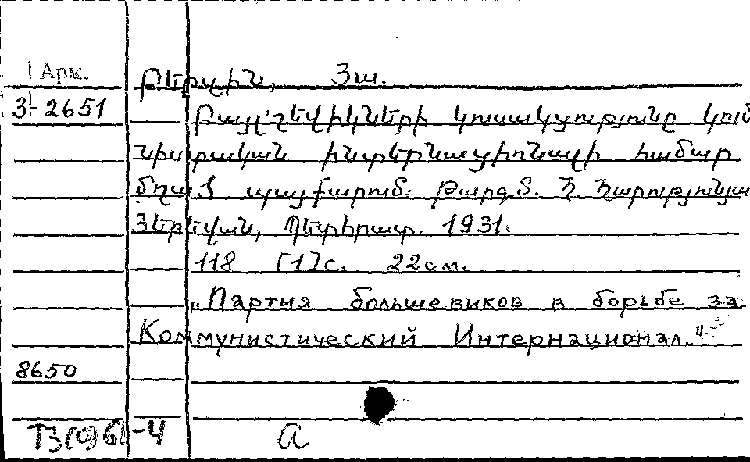 Арм.
Բերլին, Յա.
3-2651
Բայլշեվիկների կուսակցությունը կոմ
ինտերնացիոնալի համար
մղած պայքարում. Թարգմ. Հ. Հարությունյան
Յերեվան, Պետհրատ. 1931.
118 [1]с. 22см.
„Партия большевиков в борьбе за
Коммунистический Интернационал."
8650
T3(096)-4
a